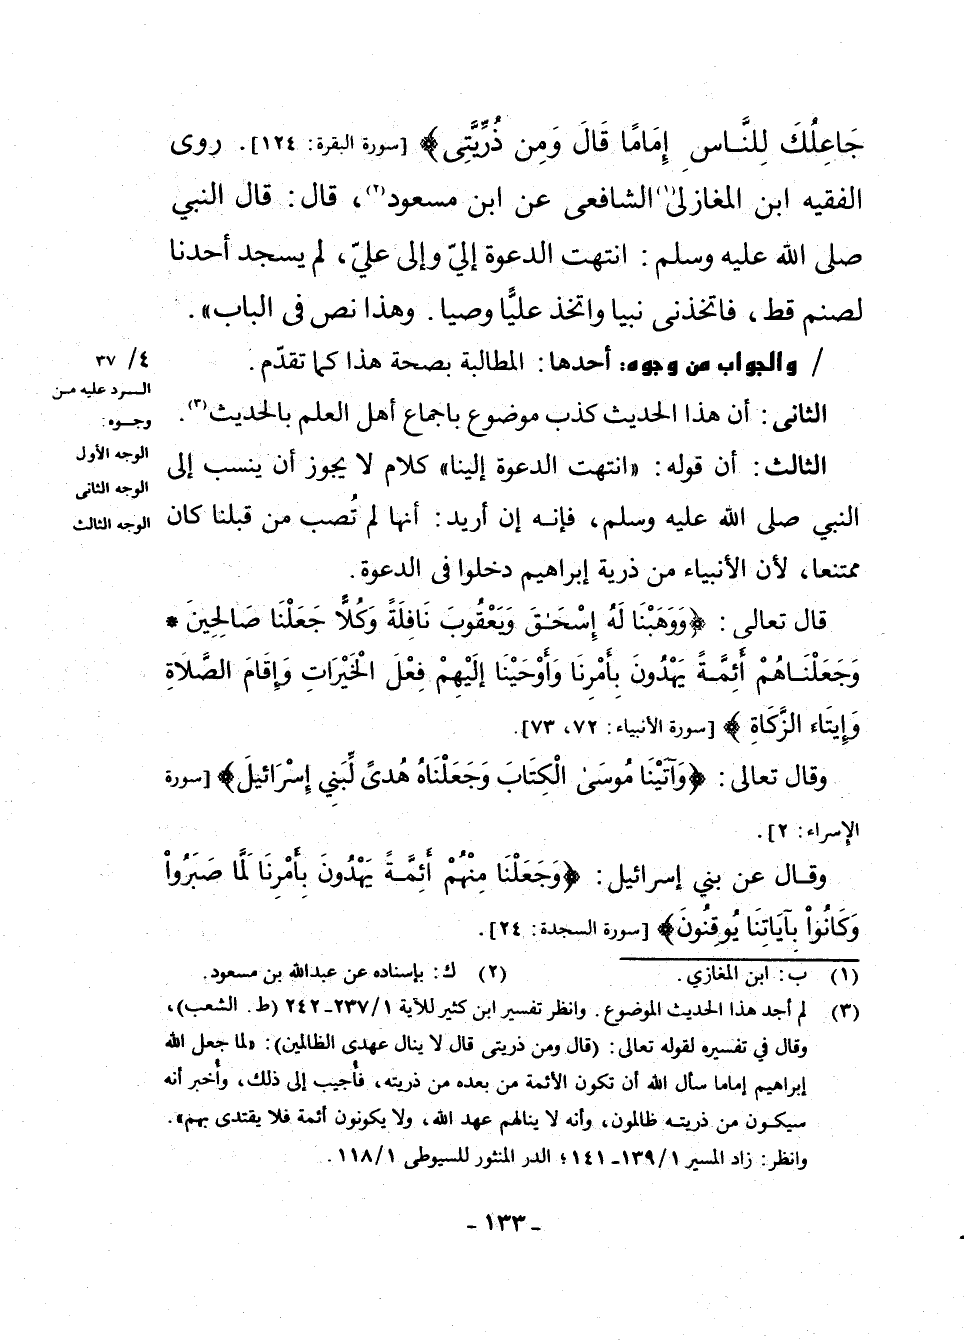 جَاعِلُكَ لِلنَّاسِ إِمَامًا قَالَ وَمِن ذُرِّيَّتِي﴾ [سورة البقرة: ١٢٤]. روى
الفقيه ابن المغازلى(١) الشافعى عن ابن مسعود(٢)، قال: قال النبي
صلى الله عليه وسلم: انتهت الدعوة إليّ وإلى عليّ، لم يسجد أحدنا
لصنم قط، فاتخذنى نبيا واتخذ عليًّا وصيا. وهذا نص فى الباب».
/ والجواب من وجوه: أحدها: المطالبة بصحة هذا كما تقدّم.
٤/ ٣٧
الرد عليه من
وجوه:
الثانى: أن هذا الحديث كذب موضوع بإجماع أهل العلم بالحديث(٣).
الثالث: أن قوله: «انتهت الدعوة إلينا» كلام لا يجوز أن ينسب إلى
الوجه الأول
الوجه الثانى
النبي صلى الله عليه وسلم، فإنه إن أريد: أنها لم تُصب من قبلنا كان
الوجه الثالث
ممتنعا، لأن الأنبياء من ذرية إبراهيم دخلوا فى الدعوة.
قال تعالى: ﴿وَوَهَبْنَا لَهُ إِسْحَـٰقَ وَيَعْقُوبَ نَافِلَةً وَكُلًّا جَعَلْنَا صَالِحِينَ *
وَجَعَلْنَاهُمْ أَئِمَّةً يَهْدُونَ بِأَمْرِنَا وَأَوْحَيْنَا إِلَيْهِمْ فِعْلَ الْخَيْرَاتِ وَإِقَامَ الصَّلَاةِ
وَإِيتَاءَ الزَّكَاةِ ﴾ [سورة الأنبياء: ٧٢، ٧٣].
وقال تعالى: ﴿وَآتَيْنَا مُوسَىٰ الْكِتَابَ وَجَعَلْنَاهُ هُدىً لِّبَنِي إِسْرَائِيلَ﴾ [سورة
الإسراء: ٢].
وقال عن بني إسرائيل: ﴿وَجَعَلْنَا مِنْهُمْ أَئِمَّةً يَهْدُونَ بِأَمْرِنَا لَمَّا صَبَرُواْ
وَكَانُواْ بِآيَاتِنَا يُوقِنُونَ﴾ [سورة السجدة: ٢٤].
(١) ب: ابن المغازي. (٢) ك: بإسناده عن عبدالله بن مسعود.
(٣) لم أجد هذا الحديث الموضوع. وانظر تفسير ابن كثير للآية ١/ ٢٣٧ـ ٢٤٢ (ط. الشعب)،
وقال في تفسيره لقوله تعالى: (قال ومن ذريتى قال لا ينال عهدى الظالمين): «لما جعل الله
إبراهيم إماما سأل الله أن تكون الأئمة من بعده من ذريته، فأجيب إلى ذلك، وأخبر أنه
سيكون من ذريته ظالمون، وأنه لا ينالهم عهد الله، ولا يكونون أئمة فلا يقتدى بهم».
وانظر: زاد المسير ١/ ١٣٩ـ ١٤١؛ الدر المنثور للسيوطى ١/ ١١٨.
ـ ١٣٣ ـ